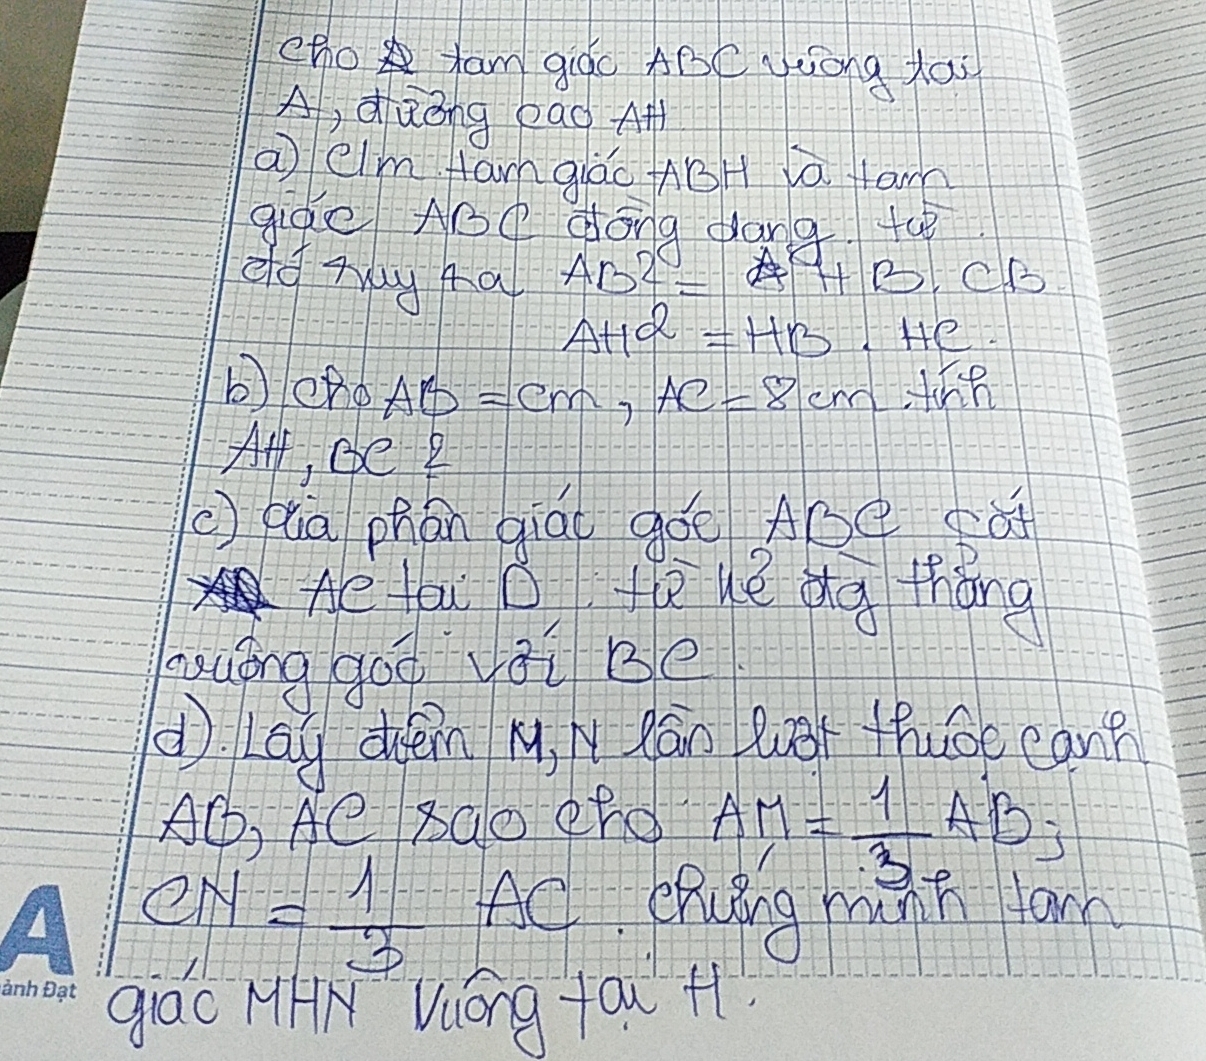 Cho tam giác ABC vuông tại
A, đường cao AH
a) C/m tam giác ABH và tam
giác ABC đồng dạng. từ
đó suy ra AB² = HB. CB
AH² = HB. HC.
b) Cho AB = cm, AC = 8 cm. tính
AH, BC ?
c) Của phân giác góc ABC cắt
AC tại D. từ kẻ đg thẳng
vuông góc với BC.
d). Lấy điểm M, N lần lượt thuộc cạnh
AB, AC sao cho AM = 1/3 AB;
CN = 1/3 AC. chứng minh tam
giác MHN vuông tại H.
A
ành Đạt